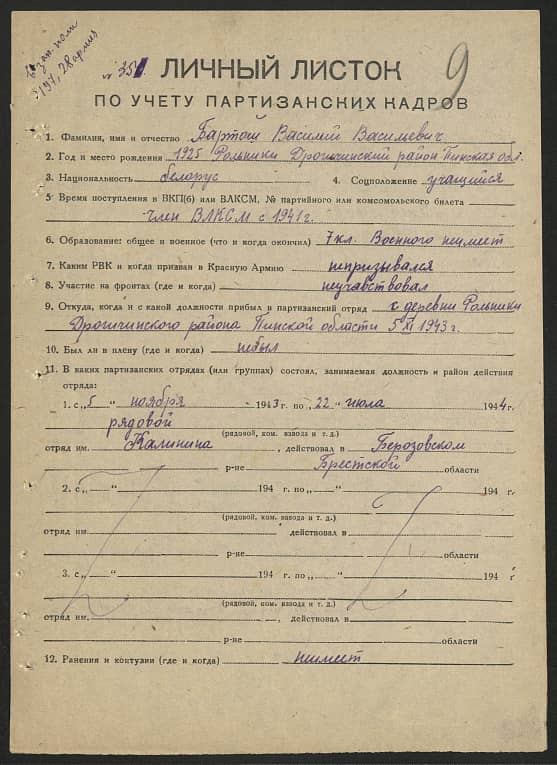 в зап. полк
№ 351 ЛИЧНЫЙ ЛИСТОК
9
ПО УЧЕТУ ПАРТИЗАНСКИХ КАДРОВ
1. Фамилия, имя и отчество Бартош Василий Василевич
2. Год и место рождения 1925 Рольники Дрогичинский район Пинская обл.
3. Национальность белорус 4. Соцположение учащийся
5. Время поступления в ВКП(б) или ВЛКСМ, № партийного или комсомольского билета
член ВЛКСМ с 1941 г.
6. Образование: общее и военное (что и когда окончил) 7 кл. Военного неимеет
7. Каким РВК и когда призван в Красную Армию непризывался
8. Участие на фронтах (где и когда) неучавствовал
9. Откуда, когда и с какой должности прибыл в партизанский отряд с деревни Рольники
Дрогичинского района Пинской области 5 XI 1943 г.
10. Был ли в плену (где и когда) небыл
11. В каких партизанских отрядах (или группах) состоял, занимаемая должность и район действия
отряда:
1. с „5 ноября 1943 г. по „22" июла 1944 г.
рядовой
(рядовой, ком. взвода и т. д.)
отряд им. Калинина, действовал в Берозовском
р-не Брестской области
2. с „ " 194 г. по „ " 194 г.
(рядовой, ком. взвода и т. д.)
отряд им. , действовал в
р-не области
3. с „ " 194 г. по „ " 194 г
(рядовой, ком. взвода и т. д.)
отряд им. , действовал в
р-не области
12. Ранения и контузии (где и когда) неимеет